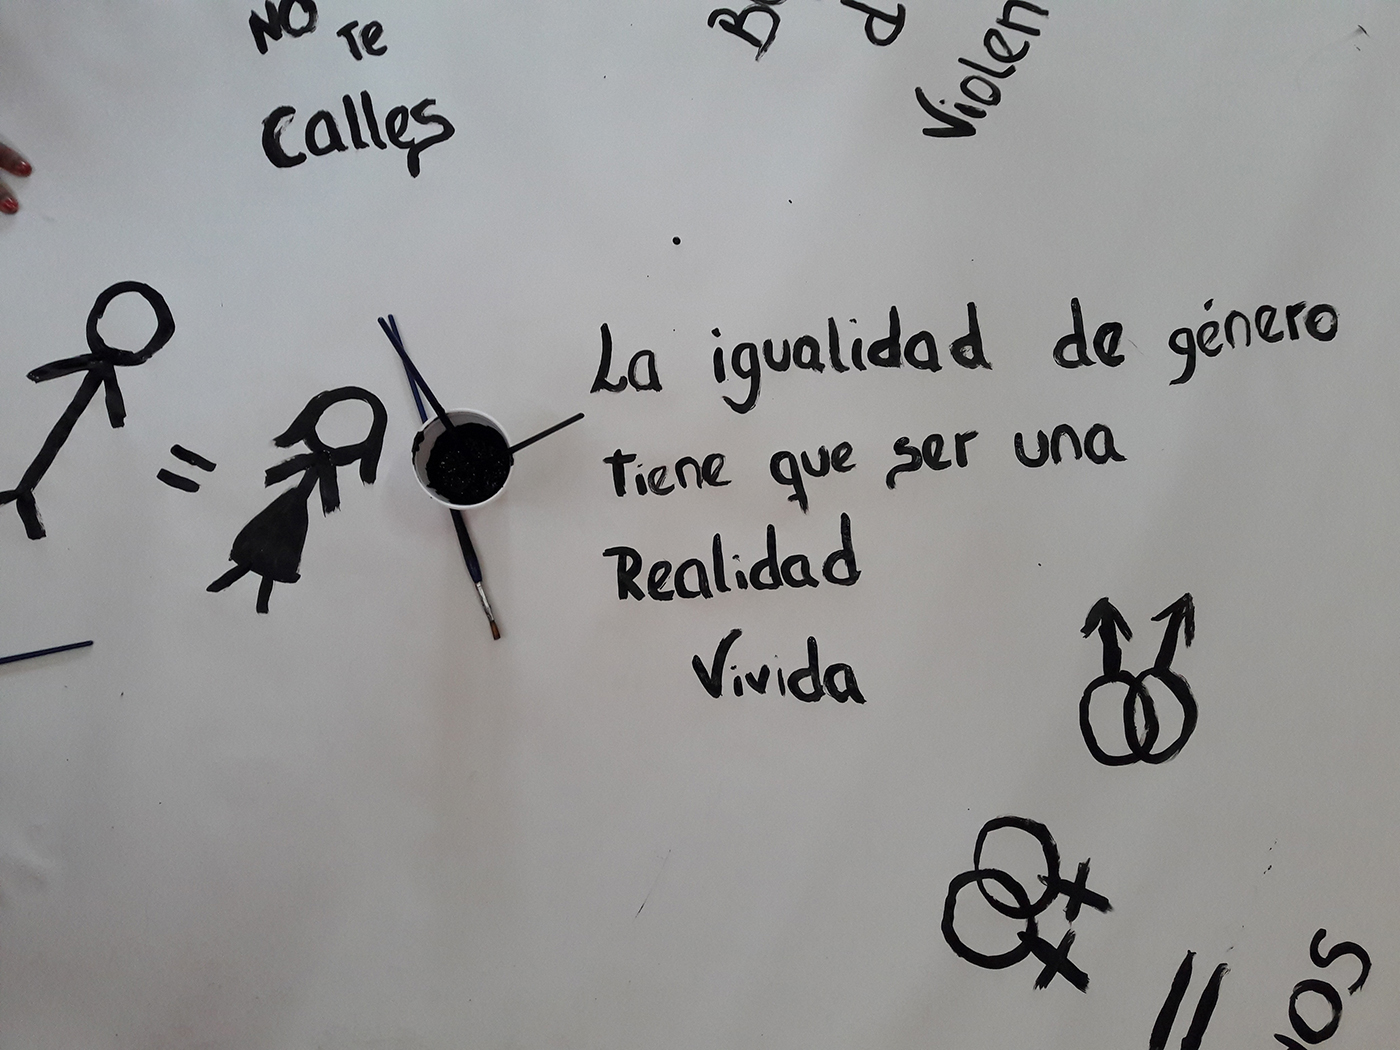 NO Te
Calles
La igualidad de género
tiene que ser una
Realidad
Vivida